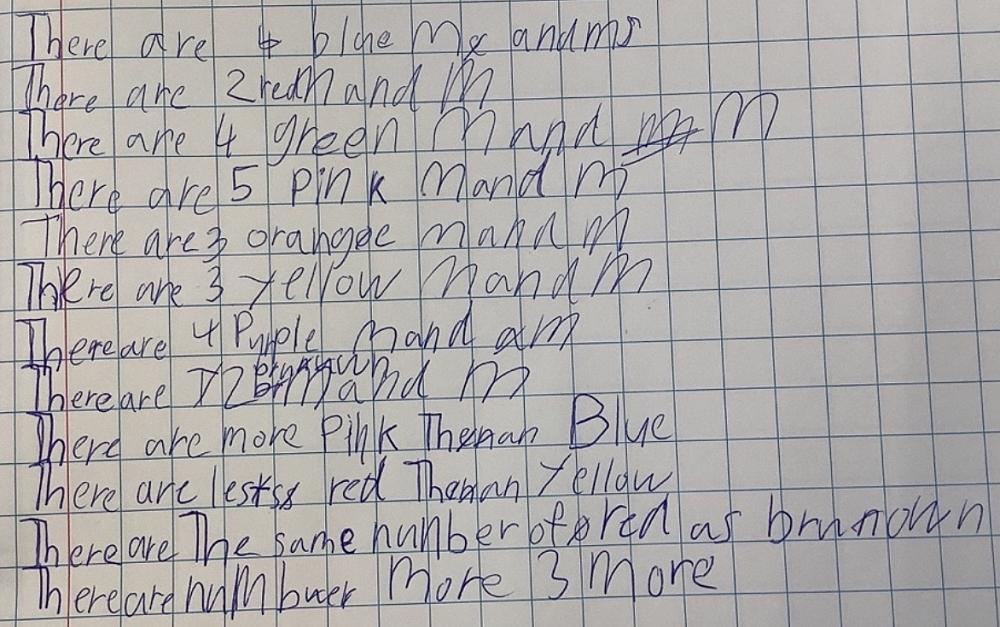 There are 4 blue M& andms
There are 2 red M and M
There are 4 green M and M
There are 5 Pink M and M
There are 3 orangee M and M
There are 3 yellow M and M
There are 4 Purple M and M
There are 2 M and M
There are more Pink Than Blue
There are less red Than Yellow
There are The same number of red as
There are more 3 More